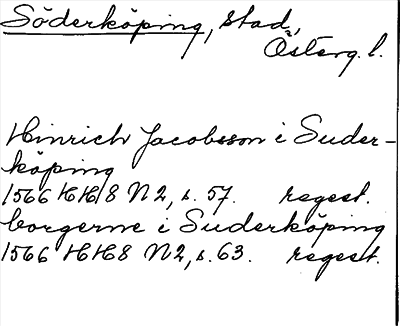 Söderköping, stad,
Österg. l.
Hinrich Jacobsson i Suder-
köping
1566 HH 8 N 2, s. 57. regest.
borgerne i Suderköping
1566 HH8 N 2, s. 63. regest.